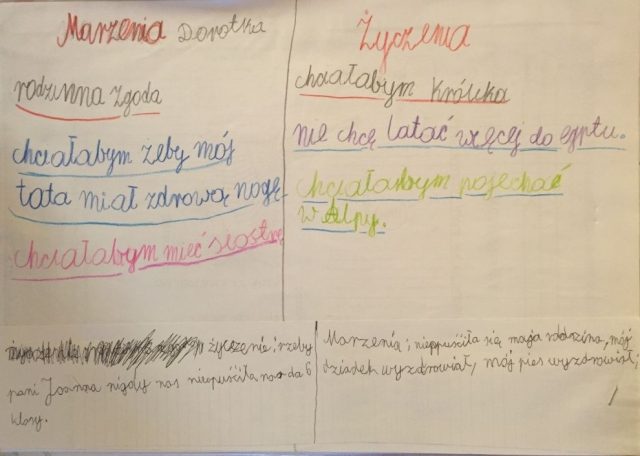 Marzenia Dorotka
rodzinna zgoda
chciałabym żeby mój
tata miał zdrową nogę.
chciałabym mieć siostrę
Życzenia
chciałabym Królika
nie chcę latać więcej do egptu.
chciałabym pojechać
w Alpy.
życzenie; rzeby
pani Joanna nigdy nas nie
klasy.
Marzenia; się moja rodzina, mój
dziadek wyzdrowiał, mój pies wyzdrowiał,